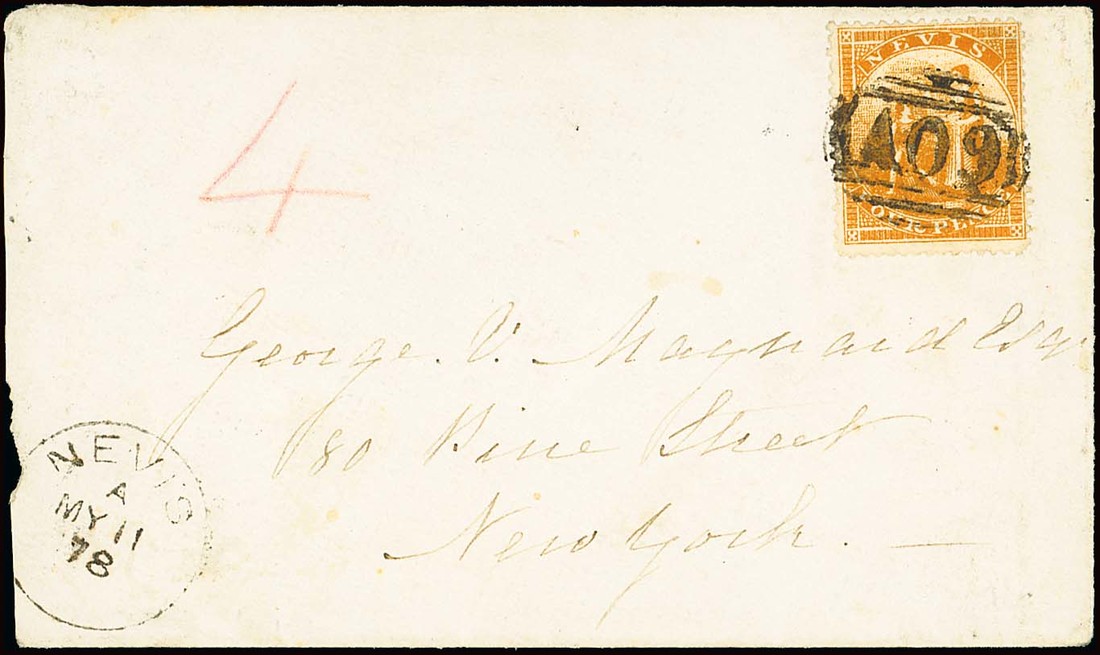 NEVIS
A09
FOUR PENCE
4
George. V. Maynard Esqr
80 Pine Street
New York. —
NEVIS
A
MY 11
78